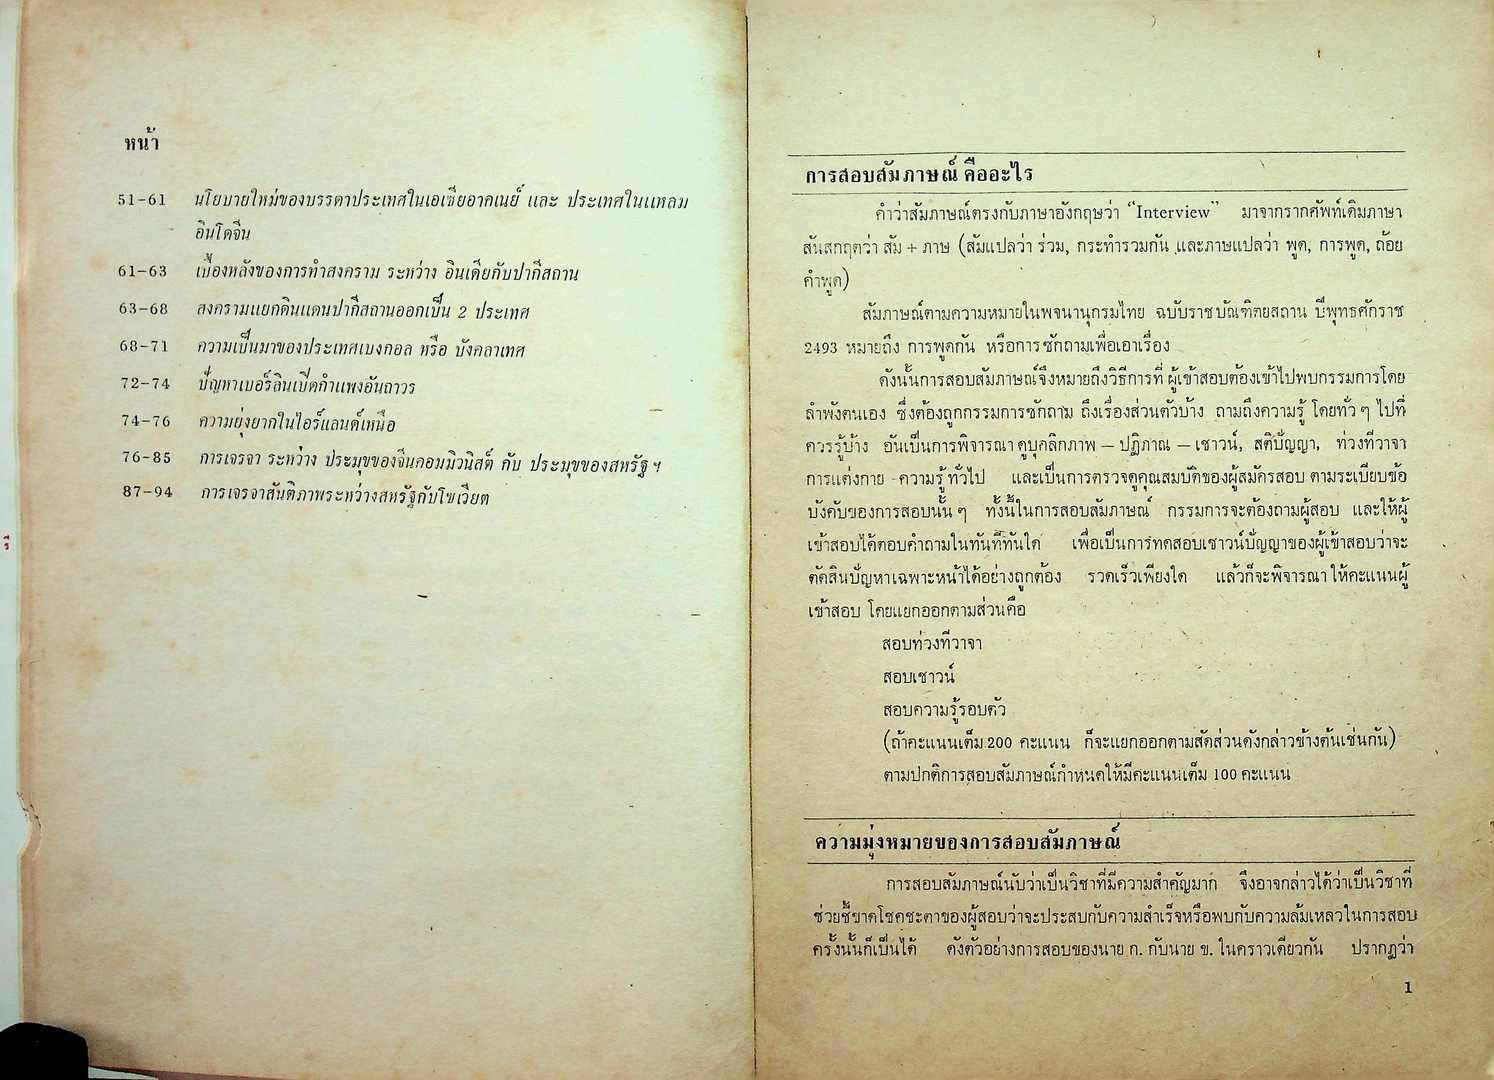 หน้า
51-61 นโยบายใหม่ของบรรดาประเทศในเอเซียอาคเนย์ และ ประเทศในแหลม
อินโดจีน
61-63 เบื้องหลังของการทำสงคราม ระหว่าง อินเดียกับปากีสถาน
63-68 สงครามแยกดินแดนปากีสถานออกเป็น 2 ประเทศ
68-71 ความเป็นมาของประเทศเบงกอล หรือ บังคลาเทศ
72-74 ปัญหาเบอร์ลินเปิดกำแพงอันถาวร
74-76 ความยุ่งยากในไอร์แลนด์เหนือ
76-85 การเจรจา ระหว่าง ประมุขของจีนคอมมิวนิสต์ กับ ประมุขของสหรัฐฯ
87-94 การเจรจาสันติภาพระหว่างสหรัฐกับโซเวียต
การสอบสัมภาษณ์ คืออะไร
คำว่าสัมภาษณ์ตรงกับภาษาอังกฤษว่า “Interview” มาจากรากศัพท์เดิมภาษา
สันสกฤตว่า สัม + ภาษ (สัมแปลว่า ร่วม, กระทำรวมกัน และภาษแปลว่า พูด, การพูด, ถ้อย
คำพูด)
สัมภาษณ์ตามความหมายในพจนานุกรมไทย ฉบับราชบัณฑิตยสถาน ปีพุทธศักราช
2493 หมายถึง การพูดกัน หรือการซักถามเพื่อเอาเรื่อง
ดังนั้นการสอบสัมภาษณ์จึงหมายถึงวิธีการที่ ผู้เข้าสอบต้องเข้าไปพบกรรมการโดย
ลำพังตนเอง ซึ่งต้องถูกกรรมการซักถาม ถึงเรื่องส่วนตัวบ้าง ถามถึงความรู้ โดยทั่ว ๆ ไปที่
ควรรู้บ้าง อันเป็นการพิจารณา ดูบุคลิกภาพ – ปฏิภาณ – เชาวน์, สติปัญญา, ท่วงทีวาจา
การแต่งกาย - ความรู้ ทั่วไป และเป็นการตรวจดูคุณสมบัติของผู้สมัครสอบ ตามระเบียบข้อ
บังคับของการสอบนั้น ๆ ทั้งนี้ในการสอบสัมภาษณ์ กรรมการจะต้องถามผู้สอบ และให้ผู้
เข้าสอบได้ตอบคำถามในทันทีทันใด เพื่อเป็นการทดสอบเชาวน์ปัญญาของผู้เข้าสอบว่าจะ
ตัดสินปัญหาเฉพาะหน้าได้อย่างถูกต้อง รวดเร็วเพียงใด แล้วก็จะพิจารณา ให้คะแนนผู้
เข้าสอบ โดยแยกออกตามส่วนคือ
สอบท่วงทีวาจา
สอบเชาวน์
สอบความรู้รอบตัว
(ถ้าคะแนนเต็ม 200 คะแนน ก็จะแยกออกตามสัดส่วนดังกล่าวข้างต้นเช่นกัน)
ตามปกติการสอบสัมภาษณ์กำหนดให้มีคะแนนเต็ม 100 คะแนน
ความมุ่งหมายของการสอบสัมภาษณ์
การสอบสัมภาษณ์นับว่าเป็นวิชาที่มีความสำคัญมาก จึงอาจกล่าวได้ว่าเป็นวิชาที่
ช่วยชี้ขาดโชคชะตาของผู้สอบว่าจะประสบกับความสำเร็จหรือพบกับความล้มเหลวในการสอบ
ครั้งนั้นก็เป็นได้ ดังตัวอย่างการสอบของนาย ก. กับนาย ข. ในคราวเดียวกัน ปรากฏว่า
1